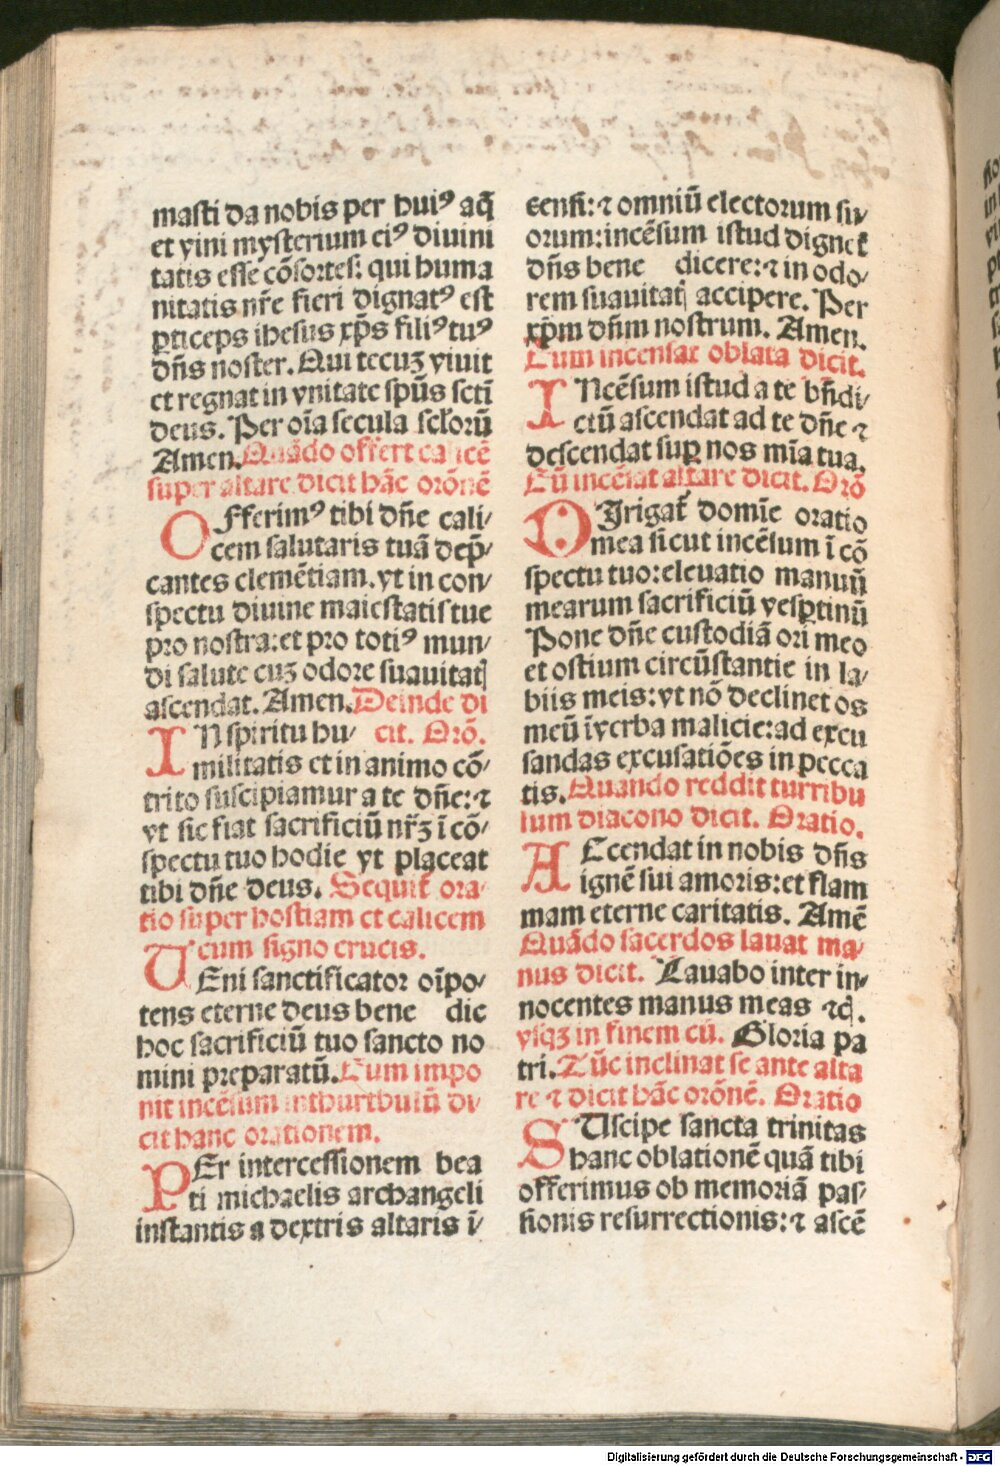 masti da nobis per huiꝰ aq̃
et vini mysterium eiꝰ diuini
tatis esse cõsortes: qui huma
nitatis nr̃e fieri dignatꝰ est
ꝑticeps ihesus xp̃s filiꝰ tuꝰ
dñs noster. Qui tecuʒ viuit
et regnat in vnitate spũs scti̅
deus. Per oĩa secula scl̓orũ
Amen. Quãdo offert calicẽ
super altare dicit hãc orõnẽ
OFferimꝰ tibi dñe cali⸗
cem salutaris tuã dep̃⸗
cantes clemẽtiam. vt in con⸗
spectu diuine maiestatis tue
pro nostra: et pro totiꝰ mun⸗
di salute cuʒ odore suauitatꝭ
ascendat. Amen. Deinde di
IN spiritu hu⸗ cit. Orõ.
militatis et in animo cõ⸗
trito suscipiamur a te dñe: ⁊
vt sic fiat sacrificiũ nr̃ʒ ĩ cõ⸗
spectu tuo hodie vt placeat
tibi dñe deus. Sequit᷑ ora⸗
tio super hostiam et calicem
cum signo crucis.
UEni sanctificator oĩpo⸗
tens eterne deus bene dic
hoc sacrificiũ tuo sancto no
mini preparatũ. Cum impo
nit incẽsum in thuribulũ di⸗
cit hanc orationem.
PEr intercessionem bea
ti michaelis archangeli
instantis a dextris altaris ĩ⸗
censi: ⁊ omniũ electorum su⸗
orum: incẽsum istud dignet᷑
dñs bene dicere: ⁊ in odo⸗
rem suauitatꝭ accipere. Per
xp̃m dñm nostrum. Amen.
Cum incensat᷑ oblata dicit.
INcẽsum istud a te bñdi⸗
ctũ ascendat ad te dñe ⁊
descendat suꝑ nos mĩa tua.
Cũ incẽsat altare dicit. Orõ
DIrigat᷑ domĩe oratio
mea sicut incẽsum ĩ cõ
spectu tuo: eleuatio manuũ
mearum sacrificiũ vesꝑtinũ
Pone dñe custodiã ori meo
et ostium circũstantie in la⸗
biis meis: vt nõ declinet os
meũ ĩ verba malicie: ad excu
sandas excusatiões in pecca
tis. Quando reddit turribu
lum diacono dicit. Oratio.
ACcendat in nobis dñs
ignẽ sui amoris: et flam
mam eterne caritatis. Amẽ
Quãdo sacerdos lauat ma⸗
nus dicit. Lauabo inter in⸗
nocentes manus meas ⁊cꝭ.
vsqʒ in finem cũ. Gloria pa
tri. Tũc inclinat se ante alta
re ⁊ dicit hãc orõnẽ. Oratio
SUscipe sancta trinitas
hanc oblationẽ quã tibi
offerimus ob memoriã pas⸗
sionis resurrectionis: ⁊ ascẽ
Digitalisierung gefördert durch die Deutsche Forschungsgemeinschaft - DFG